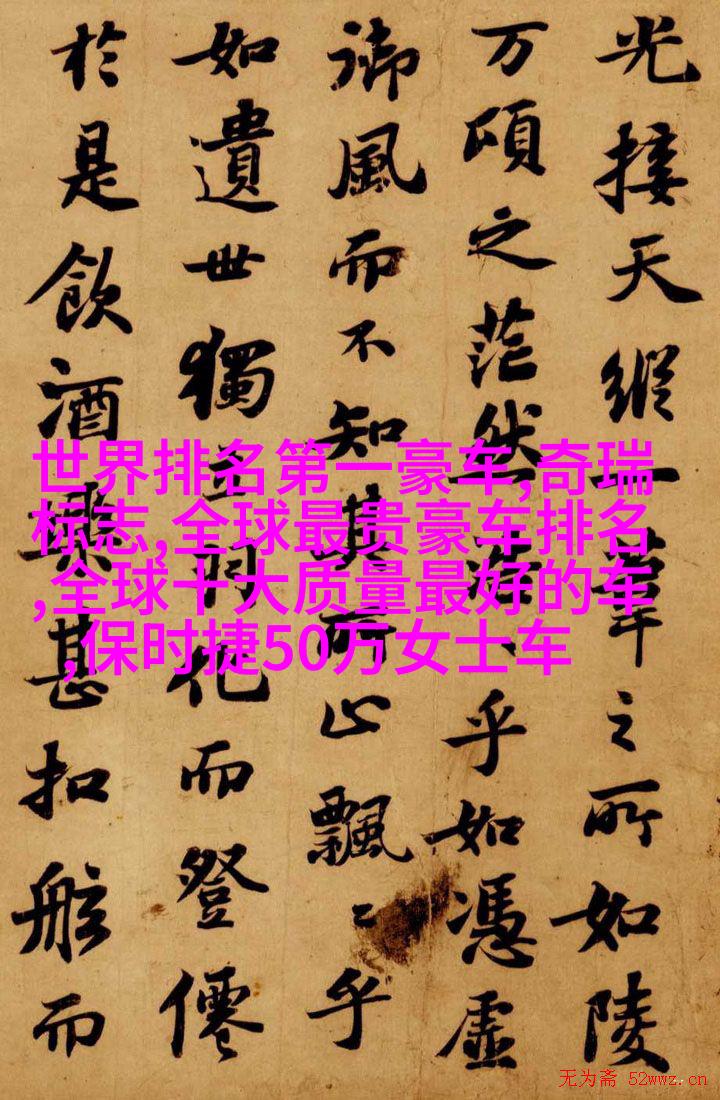 光接天縱一葦之所如陵
万頃之茫然浩〻乎如憑虛
御風而不知其所止飄〻乎
如遺世獨立羽化而登僊
於是飲酒樂甚扣舷而
世界排名第一豪车,奇瑞
标志,全球最贵豪车排名
,全球十大质量最好的车
,保时捷50万女士车
无为斋 52wwz.cn